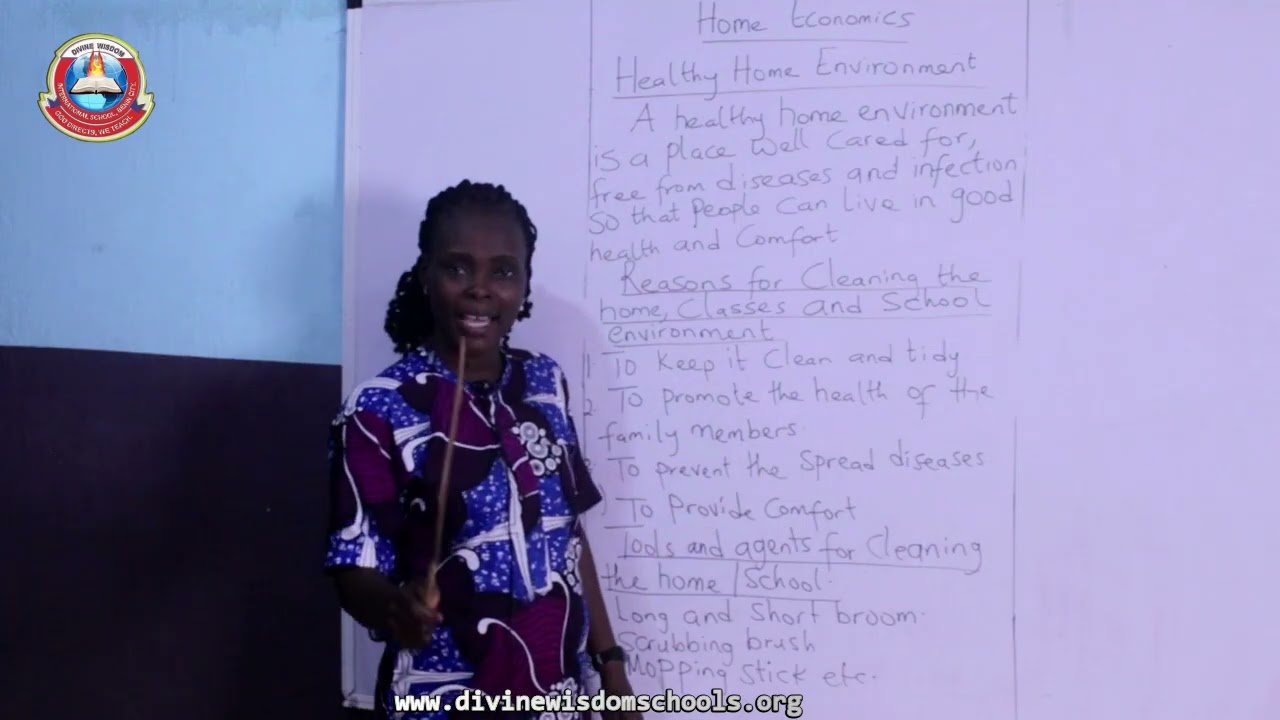 DIVINE WISDOM
INTERNATIONAL SCHOOL, BENIN CITY.
GOD DIRECTS, WE TEACH.
Home Economics
Healthy Home Environment
A healthy home environment
is a place well cared for,
free from diseases and infection
so that people can live in good
health and comfort
Reasons for Cleaning the
home, Classes and School
environment
1. To keep it clean and tidy
2. To promote the health of the
family members.
To prevent the spread diseases
To provide comfort
Tools and agents for cleaning
the home/school.
Long and short broom.
Scrubbing brush
Mopping stick etc.
www.divinewisdomschools.org